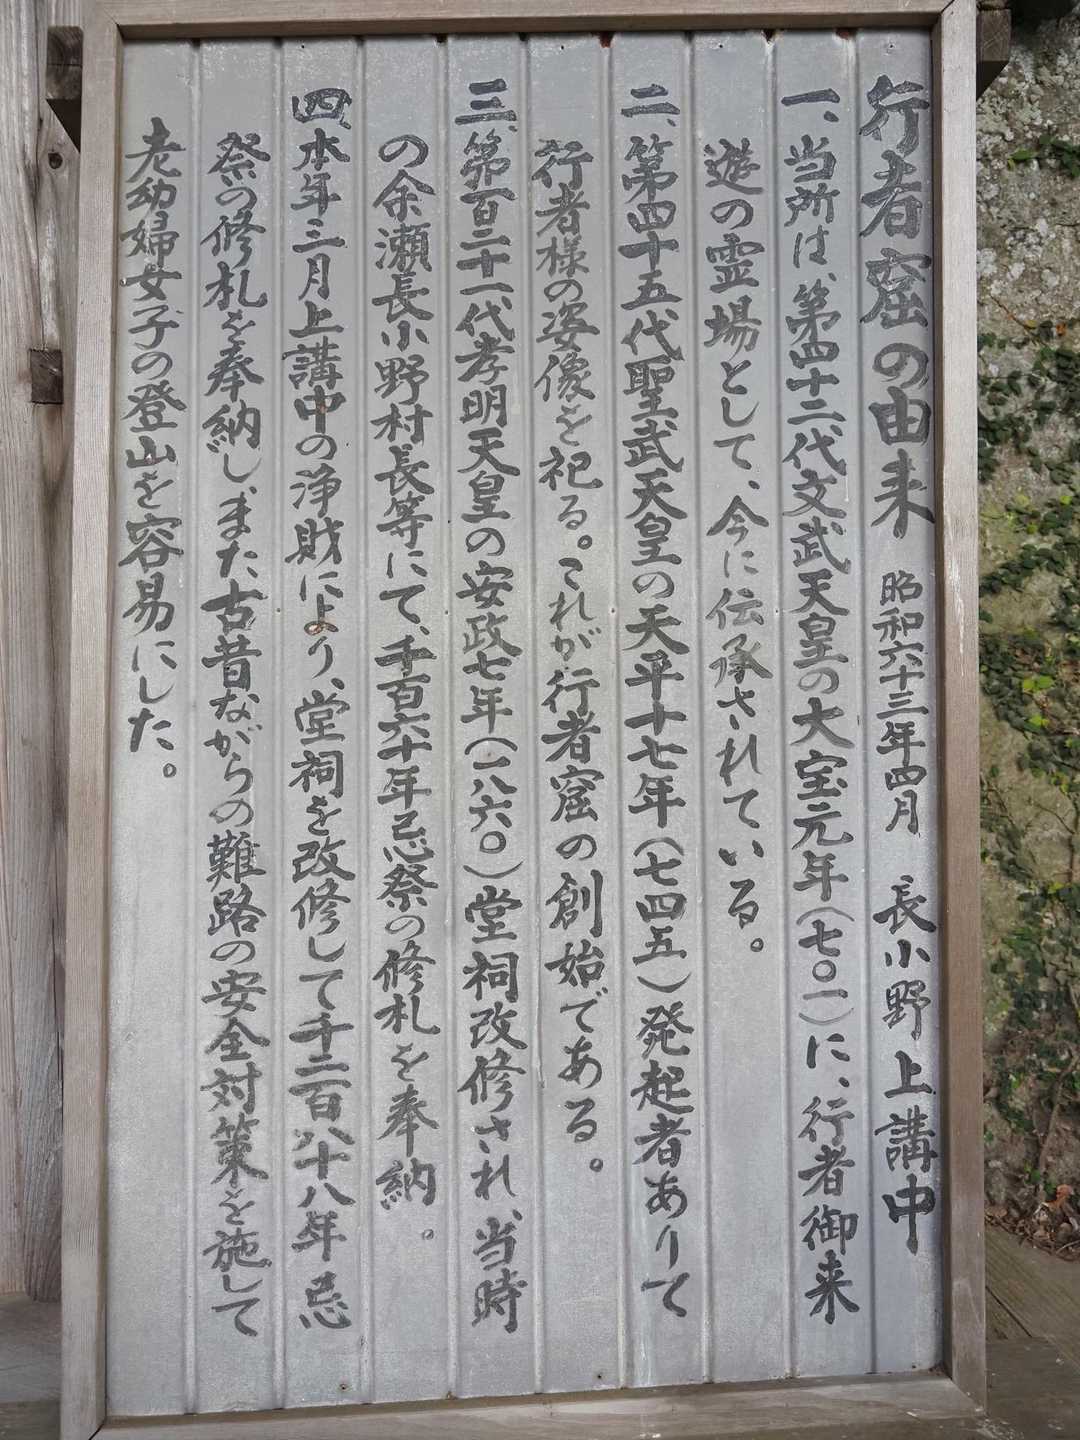 行者窟の由来　昭和六十三年四月　長小野上講中
一、当所は、第四十二代文武天皇の大宝元年（七〇一）に、行者御来
遊の霊場として、今に伝承されている。
二、第四十五代聖武天皇の天平十七年（七四五）発起者ありて
行者様の姿像を祀る。これが行者窟の創始である。
三、第百二十一代孝明天皇の安政七年（一八六〇）堂祠改修され、当時
の余瀬長小野村長等にて、千百六十年忌祭の修札を奉納。
四、本年三月上講中の浄財により、堂祠を改修して千二百八十八年忌
祭の修札を奉納し、また古昔ながらの難路の安全対策を施して
老幼婦女子の登山を容易にした。